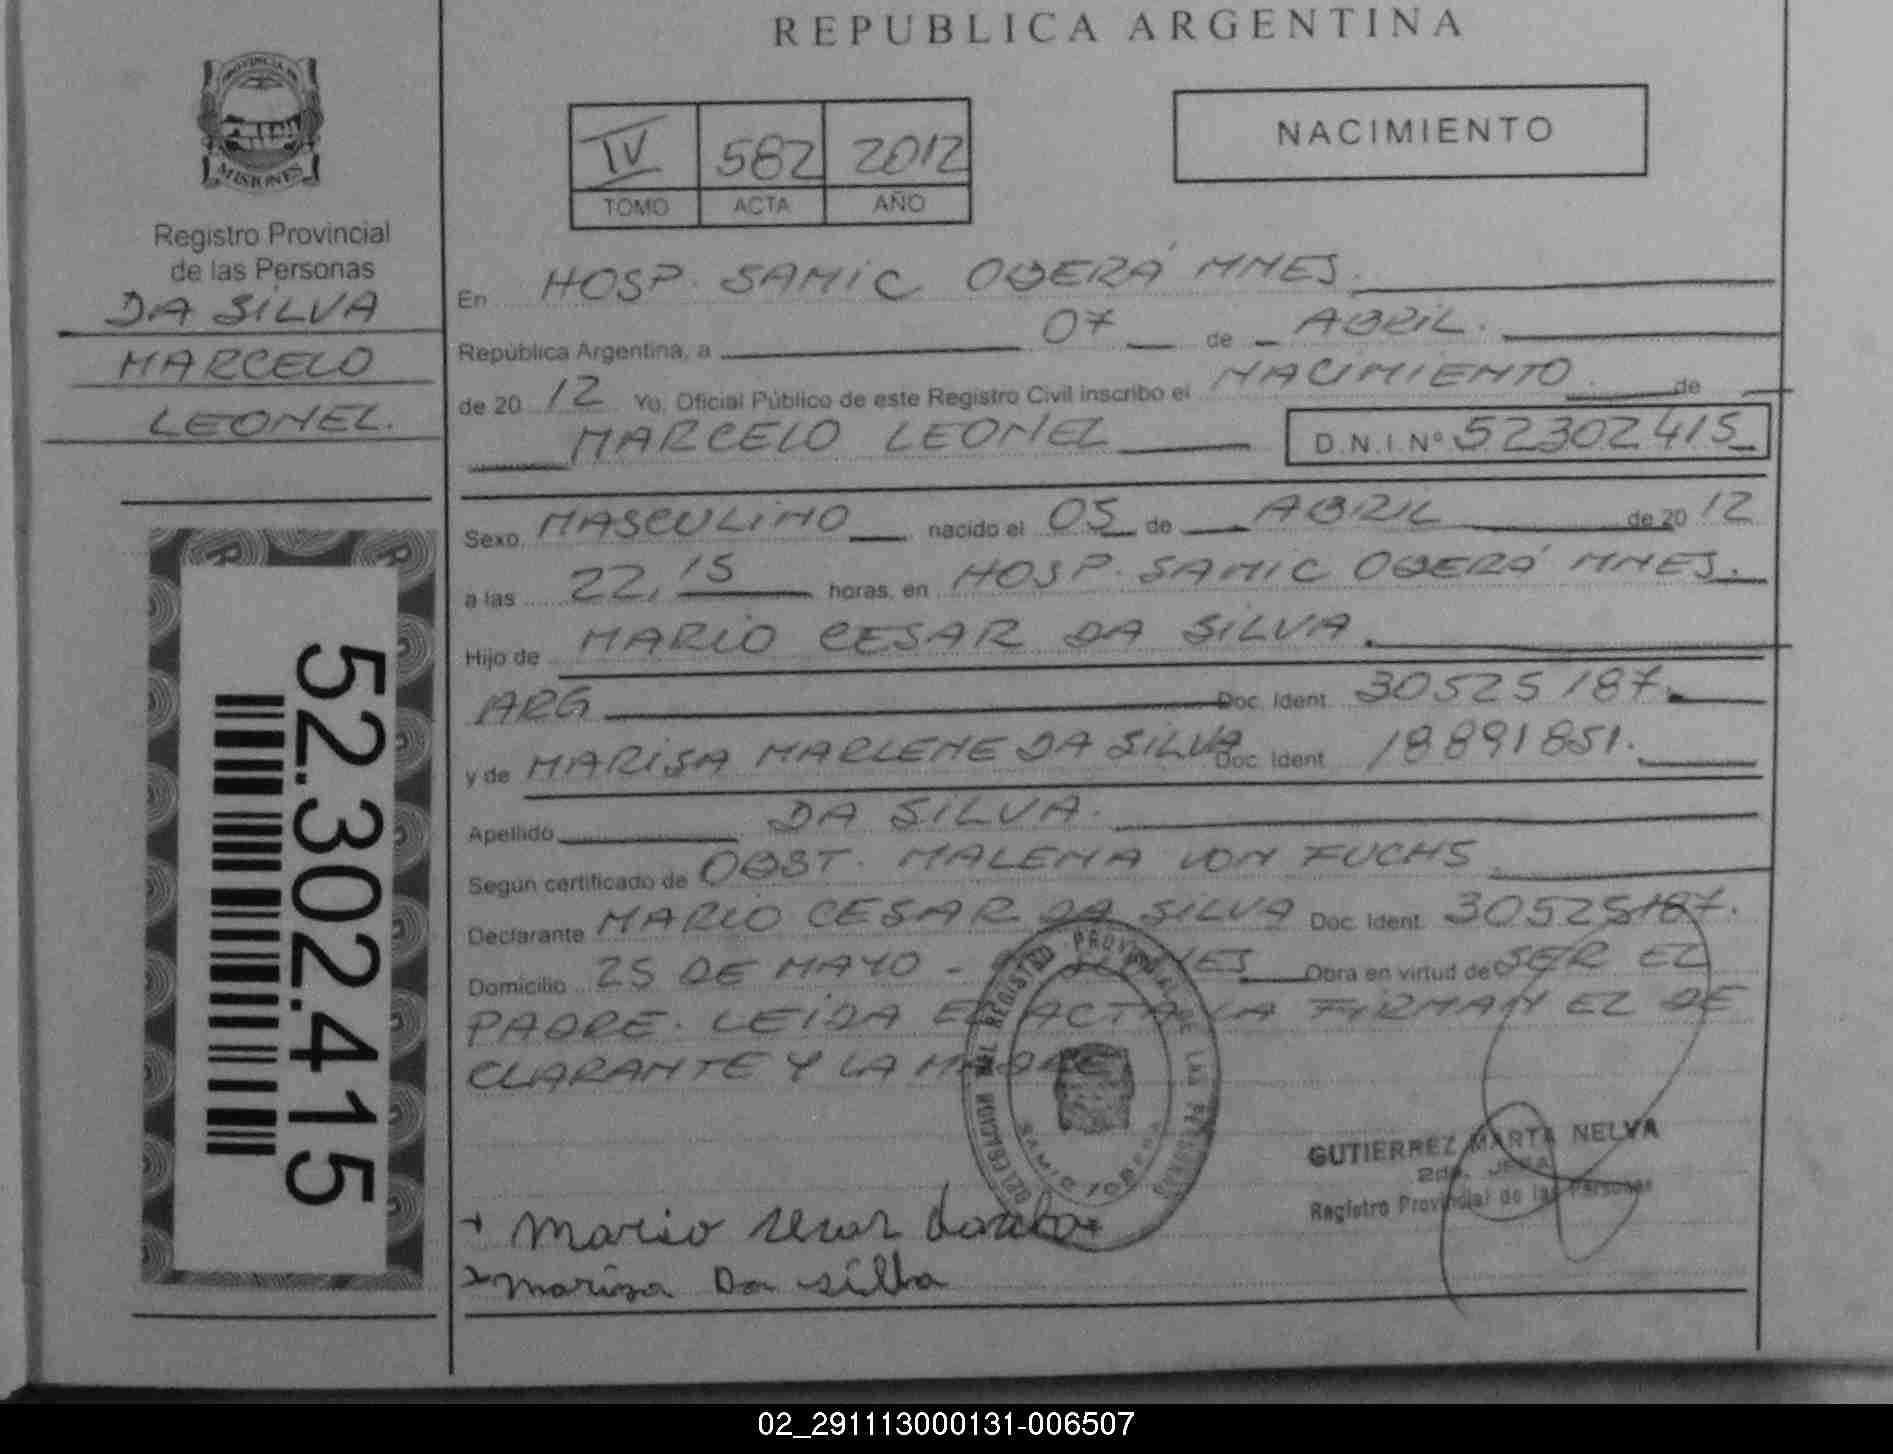 REPUBLICA ARGENTINA
PROVINCIA DE
MISIONES
Registro Provincial
de las Personas
DA SILVA
MARCELO
LEONEL.
52.302.415
IV 582 2012
TOMO ACTA AÑO
NACIMIENTO
En HOSP. SAMIC OBERÁ MNES.
República Argentina, a 07 de ABRIL.
de 20 12 Yo, Oficial Público de este Registro Civil inscribo el NACIMIENTO de
MARCELO LEONEL D.N.I. Nº 52302415
Sexo MASCULINO nacido el 05 de ABRIL de 20 12
a las 22,15 horas, en HOSP. SAMIC OBERÁ MNES.
Hijo de MARIO CESAR DA SILVA.
ARG Doc. Ident. 30525187.
y de MARISA MARLENE DA SILVA Doc. Ident. 18891851.
Apellido DA SILVA.
Según certificado de OBST. MALENA VON FUCHS
Declarante MARIO CESAR DA SILVA Doc. Ident. 30525187.
Domicilio 25 DE MAYO - Obra en virtud de SER EL
PADRE. LEIDA EL ACTA LA FIRMAN EL DE
CLARANTE Y LA MADRE
REGISTRO PROVINCIAL DE LAS PERSONAS
SAMIC OBERA
GUTIERREZ MARTA NELVA
2da. JEFA
Registro Provincial de las Personas
Mario sesar
marisa Da silba
02_291113000131-006507